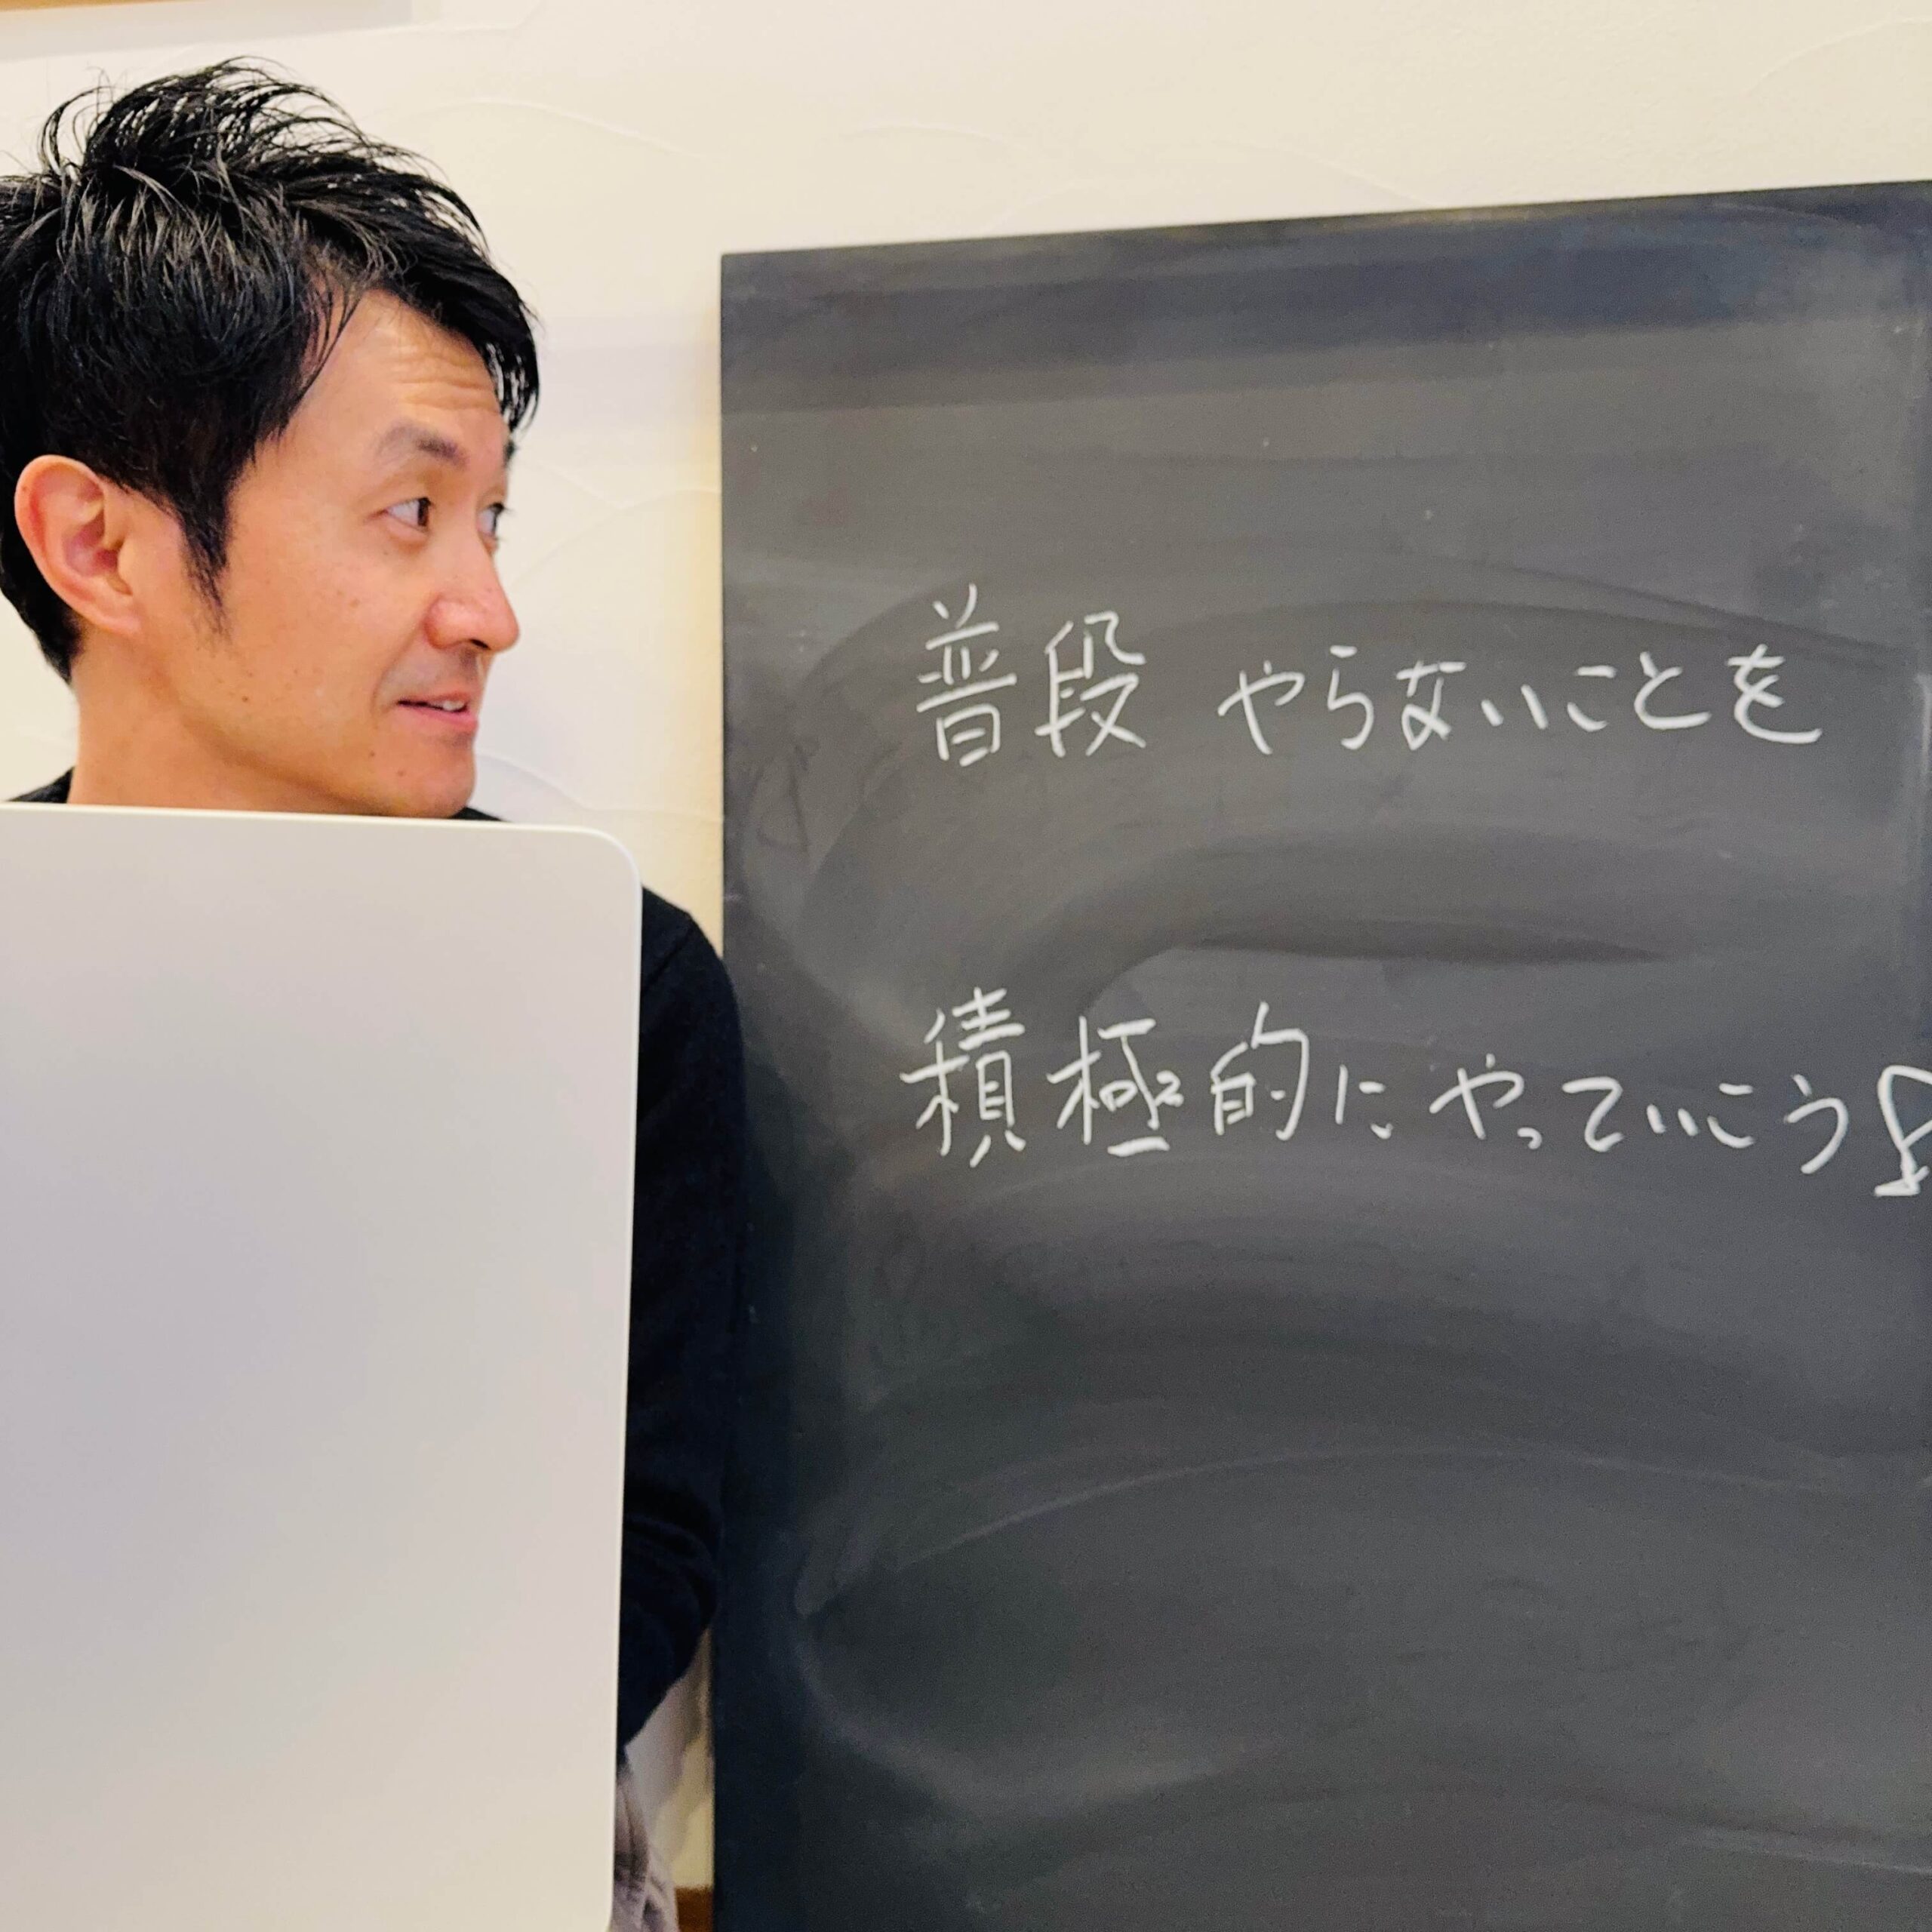 普段 やらないことを
積極的に やっていこう!